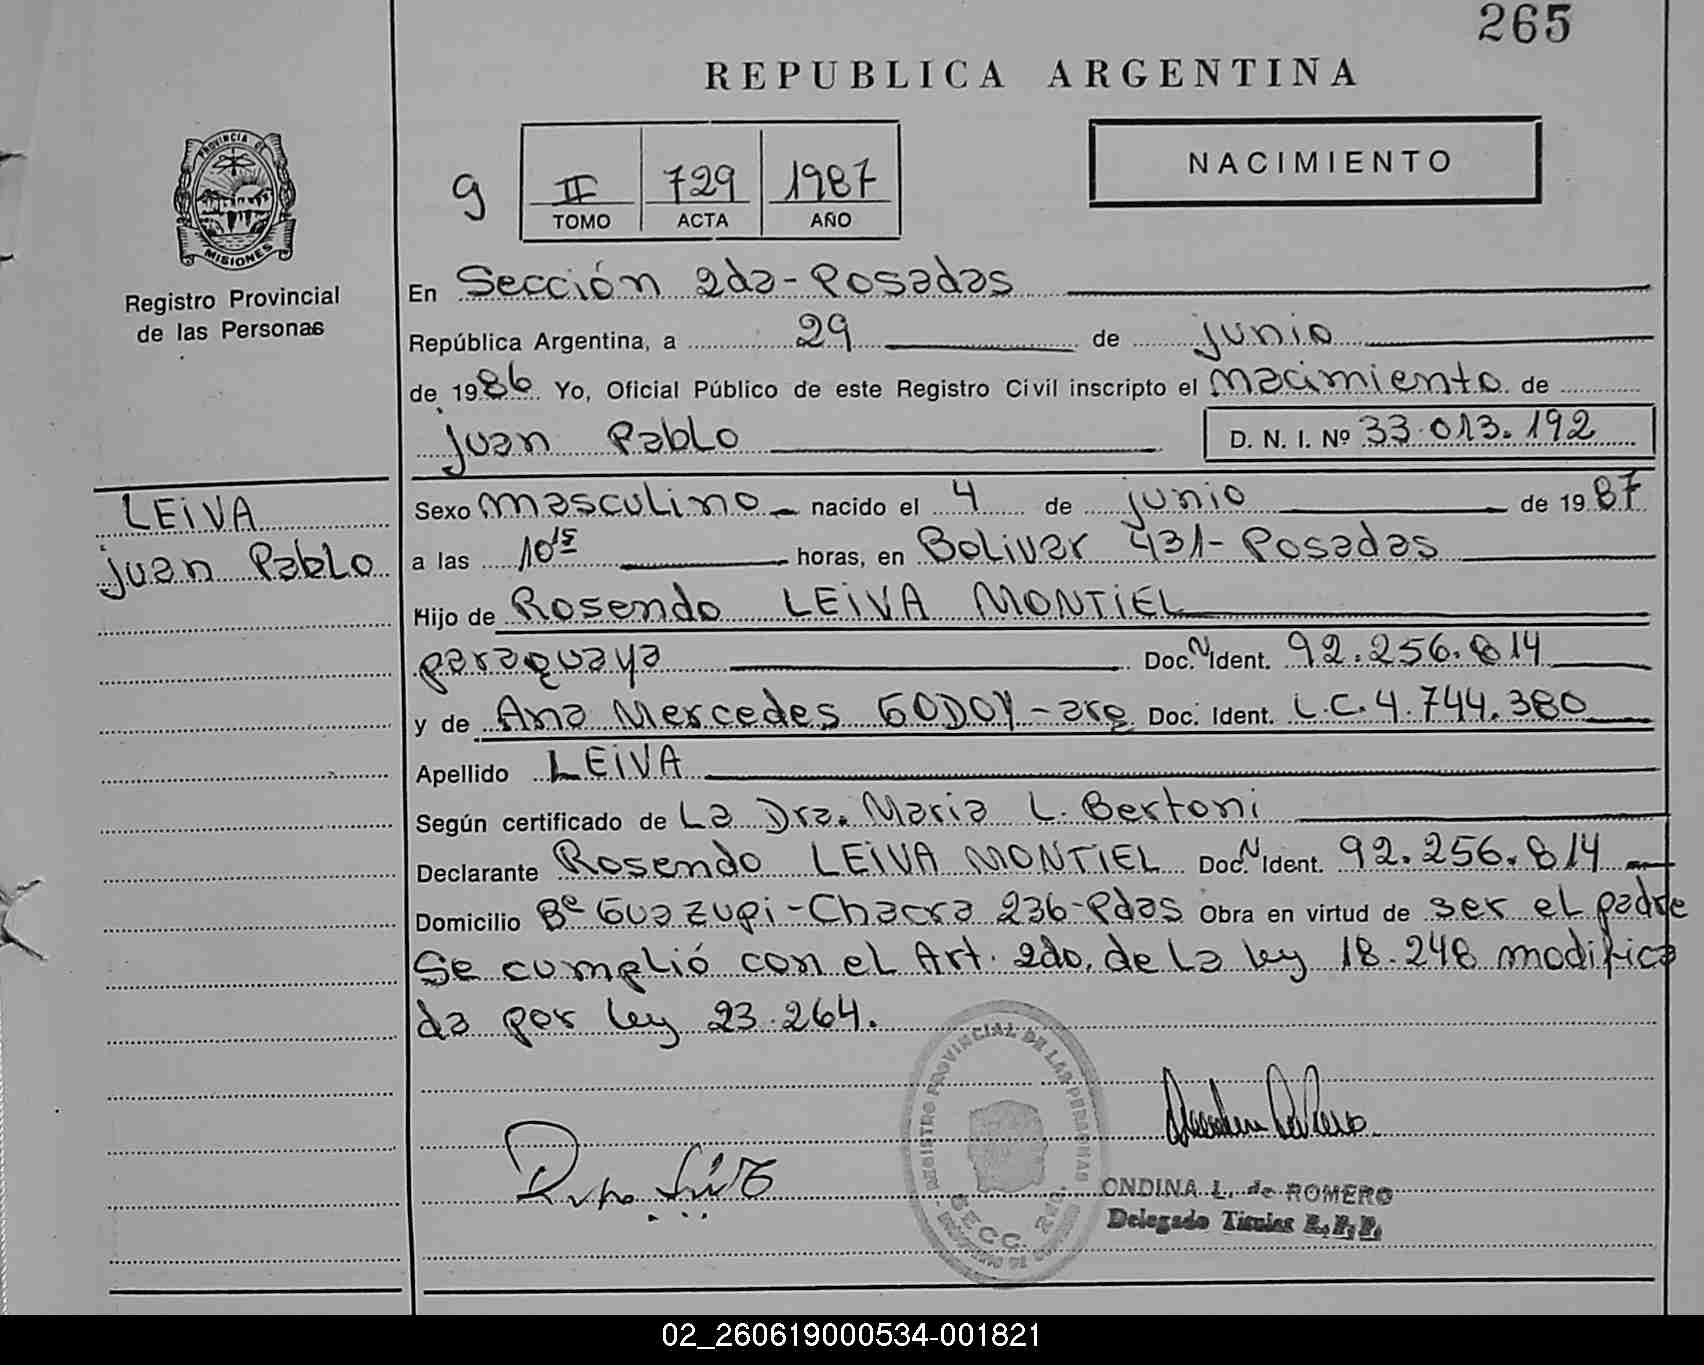 265
REPUBLICA ARGENTINA
PROVINCIA DE
MISIONES
Registro Provincial
de las Personas
9
II 729 1987
TOMO ACTA AÑO
NACIMIENTO
En Sección 2da-Posadas
República Argentina, a 29 de junio
de 1986 Yo, Oficial Público de este Registro Civil inscripto el nacimiento de
Juan Pablo D. N. I. Nº 33.013.192
LEIVA
Juan Pablo
Sexo masculino nacido el 4 de junio de 1987
a las 10 15 horas, en Bolivar 431-Posadas
Hijo de Rosendo LEIVA MONTIEL
paraguaya Doc. N Ident. 92.256.814
y de Ana Mercedes GODOY-arg Doc. Ident. L.C.4.744.380
Apellido LEIVA
Según certificado de La Dra. Maria L. Bertoni
Declarante Rosendo LEIVA MONTIEL Doc. N Ident. 92.256.814
Domicilio Bº Guazupi-Chacra 236-Pdas Obra en virtud de ser el padre
Se cumplió con el Art. 2do. de La ley 18.248 modifica
da por ley 23.264.
REGISTRO PROVINCIAL DE LAS PERSONAS
SECC. 2da.
ONDINA L. de ROMERO
Delegado Titular R.P.P.
02_260619000534-001821